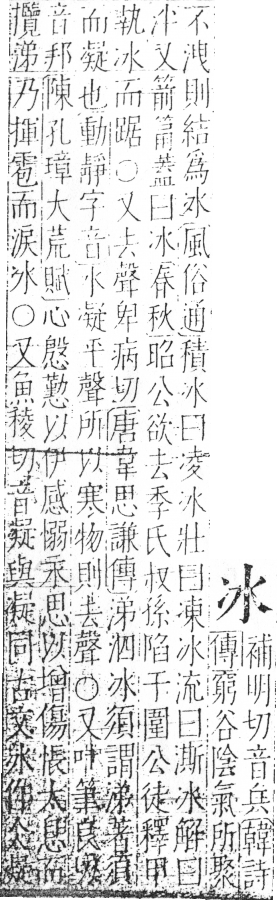 冰
補明切音兵韓詩
傳窮谷陰氣所聚
不洩則結爲冰風俗通積冰曰凌冰壯曰凍冰流曰澌冰解曰
泮又箭筩蓋曰冰春秋昭公欲去季氏叔孫陷于圍公徒釋甲
執冰而踞○又去聲卑病切唐韋思謙傳涕泗冰須謂涕著須
而凝也動靜字音水凝平聲所以寒物則去聲○又叶筆良切
音邦陳孔璋大荒賦心慇懃以伊感慍永思以增傷悵太息而
攬涕乃揮雹而淚冰○又魚稜切音凝與凝同古文冰作仌凝